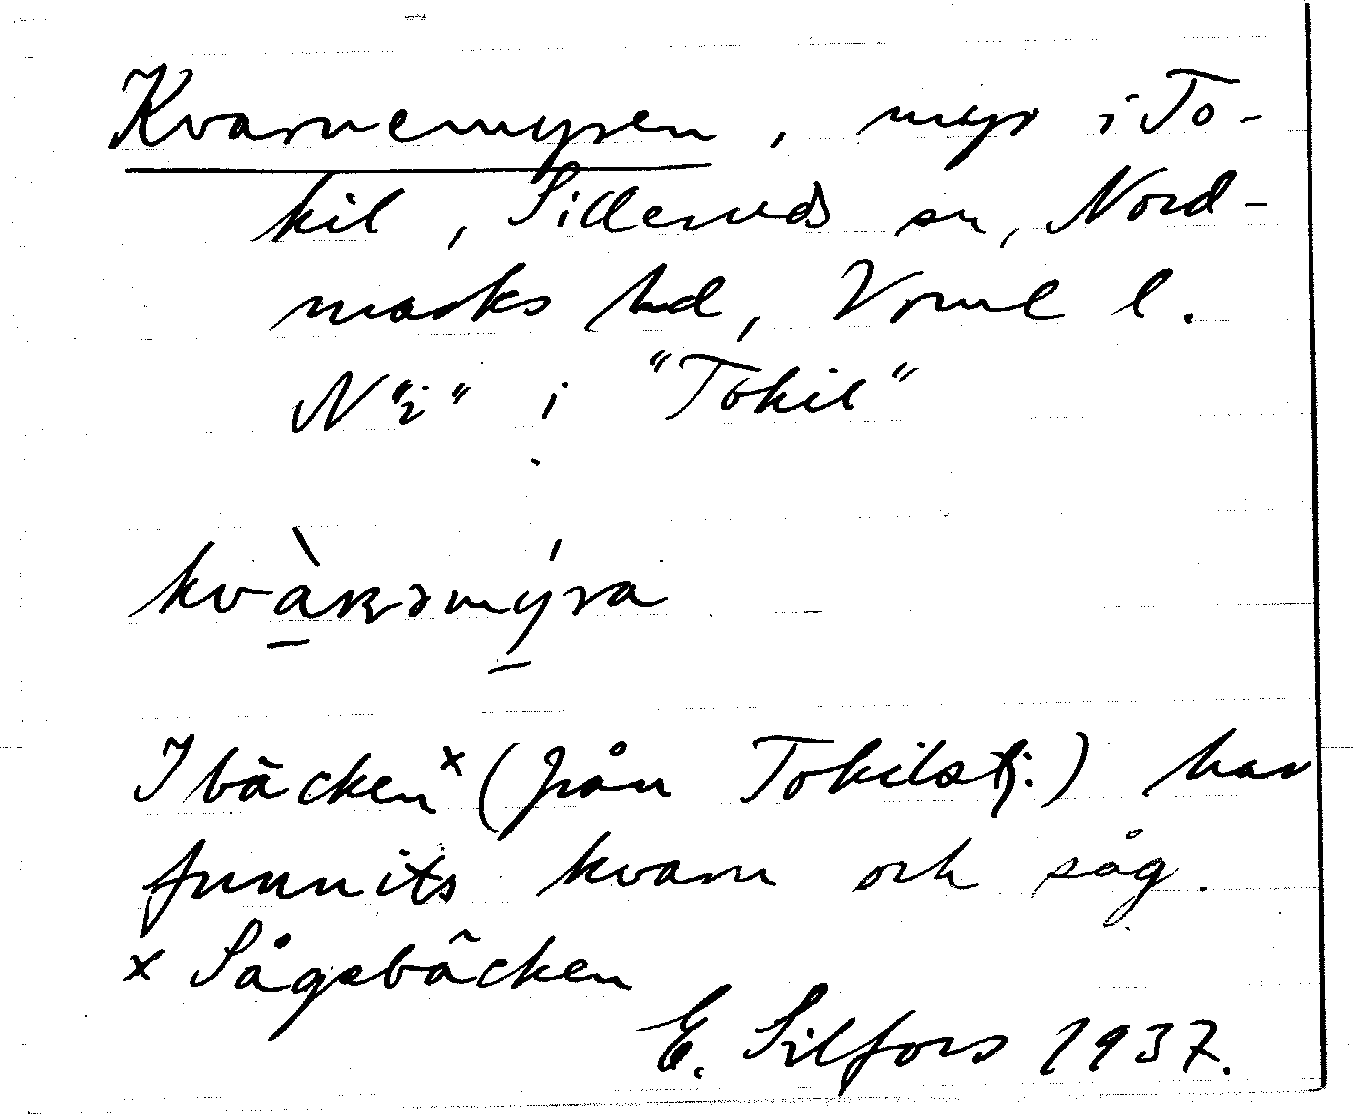 Kvarnemyren, myr i To-
kil, Silleruds sn, Nord-
marks hd, Vrml l.
N "i" i "Tokil"
I bäcken x (från Tokilstj.) har
funnits kvarn och såg.
x Sågebäcken
E. Silfors 1937.